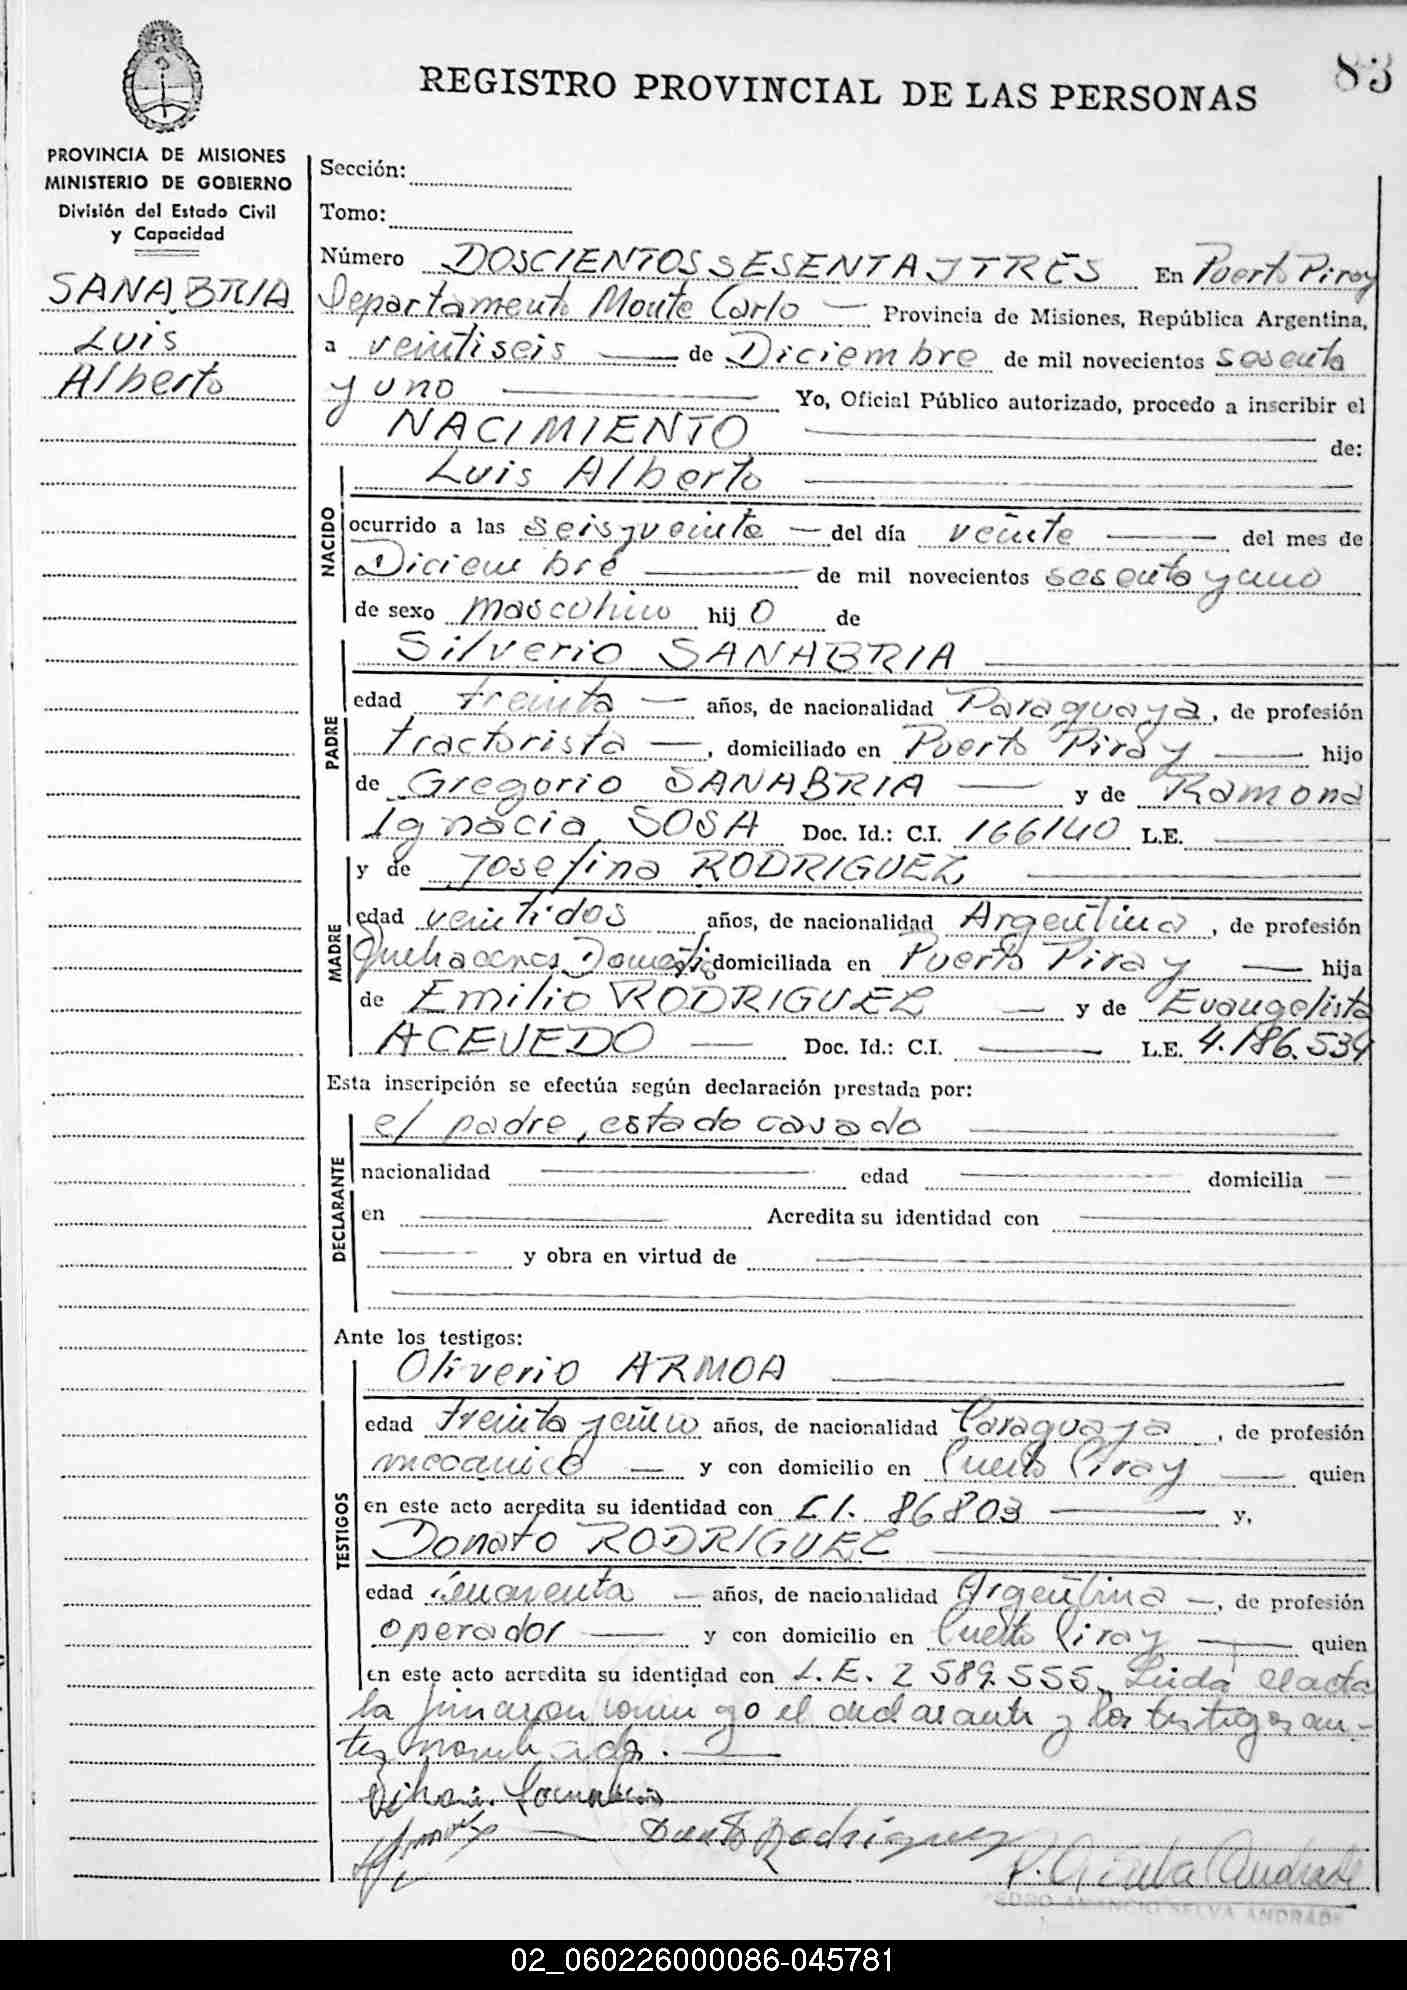 83
REGISTRO PROVINCIAL DE LAS PERSONAS
PROVINCIA DE MISIONES
MINISTERIO DE GOBIERNO
División del Estado Civil
y Capacidad
SANABRIA
Luis
Alberto
Sección:
Tomo:
Número DOSCIENTOS SESENTA Y TRES En Puerto Piray
Departamento Monte Carlo — Provincia de Misiones, República Argentina,
a veintiseis — de Diciembre de mil novecientos sesenta
y uno — Yo, Oficial Público autorizado, procedo a inscribir el
NACIMIENTO — de:
NACIDO
Luis Alberto —
ocurrido a las seis y veinte — del día veinte — del mes de
Diciembre — de mil novecientos sesenta y uno
de sexo masculino hijo de
PADRE
Silverio SANABRIA —
edad treinta — años, de nacionalidad Paraguaya, de profesión
tractorista —, domiciliado en Puerto Piray — hijo
de Gregorio SANABRIA — y de Ramona
Ignacia SOSA Doc. Id.: C.I. 166140 L.E. —
MADRE
y de Josefina RODRIGUEZ —
edad veintidos años, de nacionalidad Argentina, de profesión
Quehaceres Domésti domiciliada en Puerto Piray — hija
de Emilio RODRIGUEZ — y de Evangelista
ACEVEDO — Doc. Id.: C.I. — L.E. 4.186.534
Esta inscripción se efectúa según declaración prestada por:
DECLARANTE
el padre, estado casado —
nacionalidad — edad — domicilia —
en — Acredita su identidad con —
— y obra en virtud de —
Ante los testigos:
TESTIGOS
Oliverio ARMOA —
edad treinta y cinco años, de nacionalidad Paraguaya, de profesión
mecanico — y con domicilio en Puerto Piray — quien
en este acto acredita su identidad con C.I. 86803 — y,
Donato RODRIGUEZ —
edad cuarenta — años, de nacionalidad Argentina —, de profesión
operador — y con domicilio en Puerto Piray — quien
en este acto acredita su identidad con L.E. 2 589.555. Leida el acta
la firmaron conmigo el declarante y los testigos an-
tes nombrados. —
Donato Rodriguez
PEDRO AMANCIO SELVA ANDRADE
02_060226000086-045781